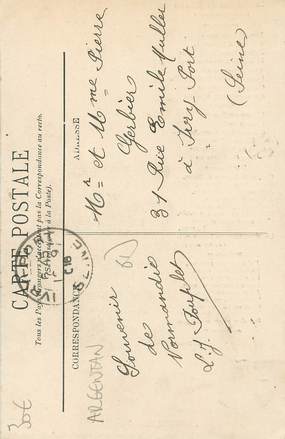 CARTE POSTALE
Tous les Pays étrangers n'acceptent pas la Correspondance au recto.
(Se renseigner à la Poste).
CORRESPONDANCE
ADRESSE
Souvenir
de
Normandie
L. J. Fouplet
Mr et Mme Pierre
Gerbier
31 Rue Emile Muller
à Ivry Port
(Seine)
ARGENTAN
61
30€